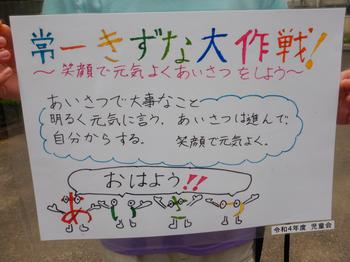 常一きずな大作戦!
～笑顔で元気よくあいさつをしよう～
あいさつで大事なこと
明るく元気に言う。あいさつは進んで、
自分からする。 笑顔で元気よく。
おはよう!!
あいさつ
令和4年度 児童会